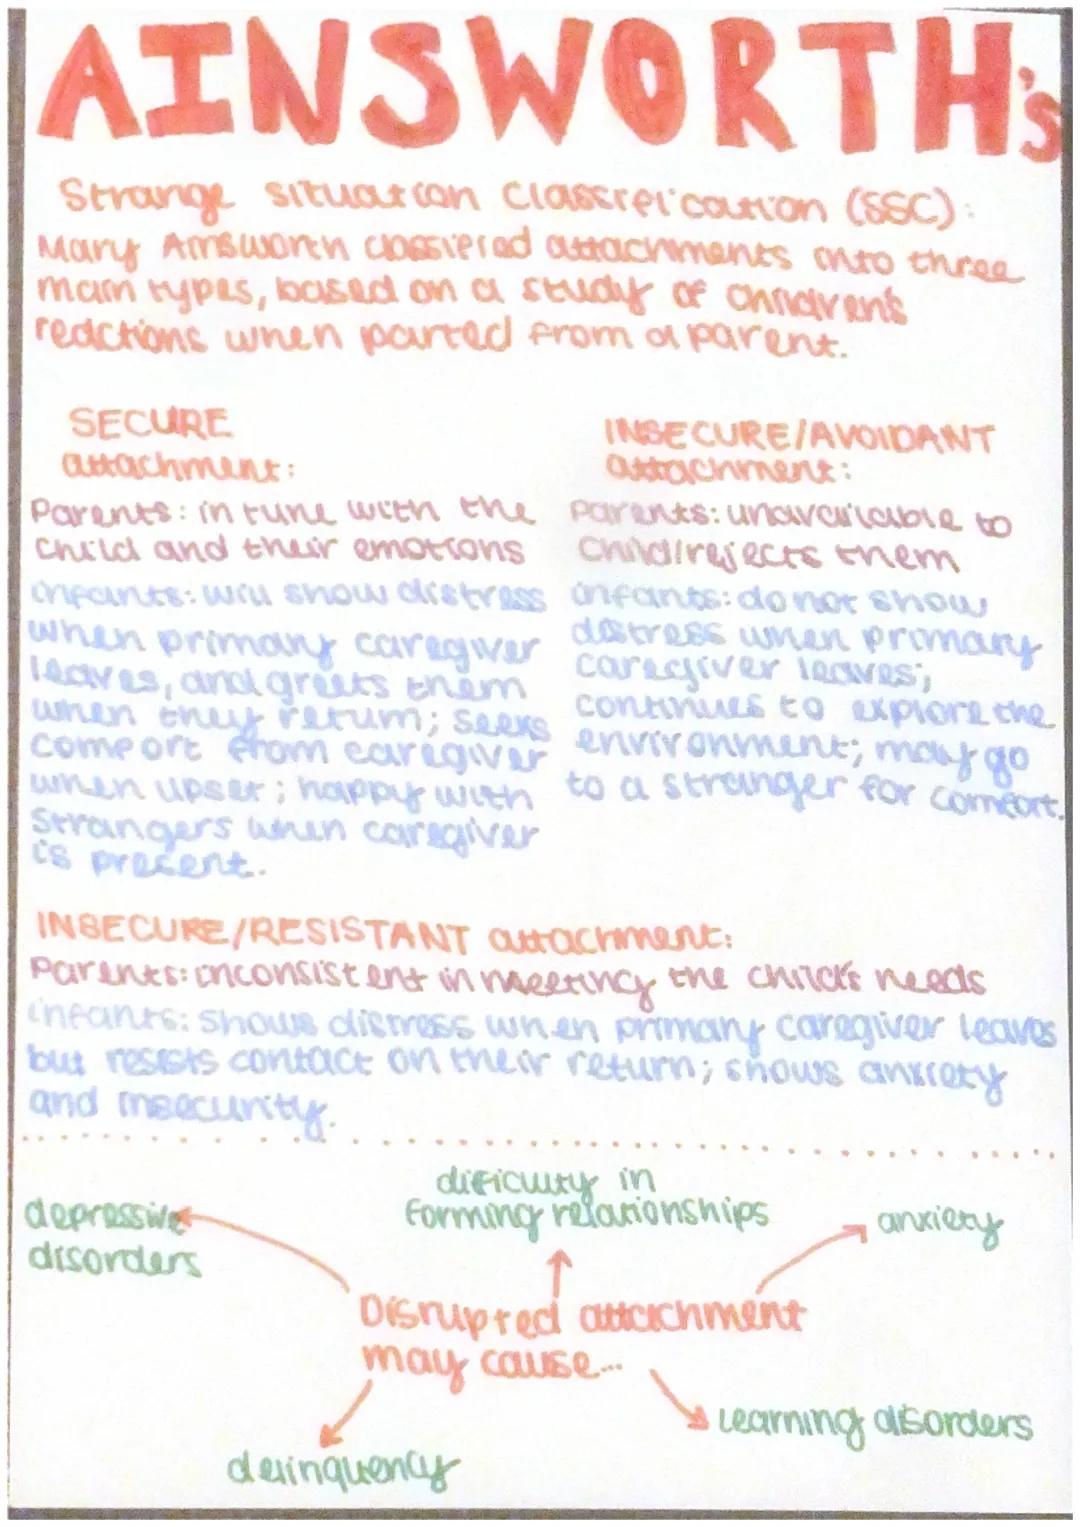 AINSWORTH's
Strange situation Classification (SSC):
Mary Ainsworth classified attachments into three
main types, based on a study of children's
reactions when parted from a parent.
SECURE
attachment:
Parents: in tune with the
child and their emotions
infants: will show distress
when primary caregiver
leaves, and greets them
when they return; seeks
comfort from caregiver
when upset; happy with
strangers when caregiver
is present.
INSECURE/AVOIDANT
attachment:
Parents: unavailable to
child/rejects them
infants: do not show
distress when primary
caregiver leaves;
continues to explore the
environment; may go
to a stranger for comfort.
INSECURE/RESISTANT attachment:
Parents: inconsistent in meeting the child's needs
infants: shows distress when primary caregiver leaves
but resists contact on their return; shows anxiety
and insecurity.
depressive
disorders
dificulty in
forming relationships
anxiety
Disrupted attachment
may cause...
delinquency
Learning disorders